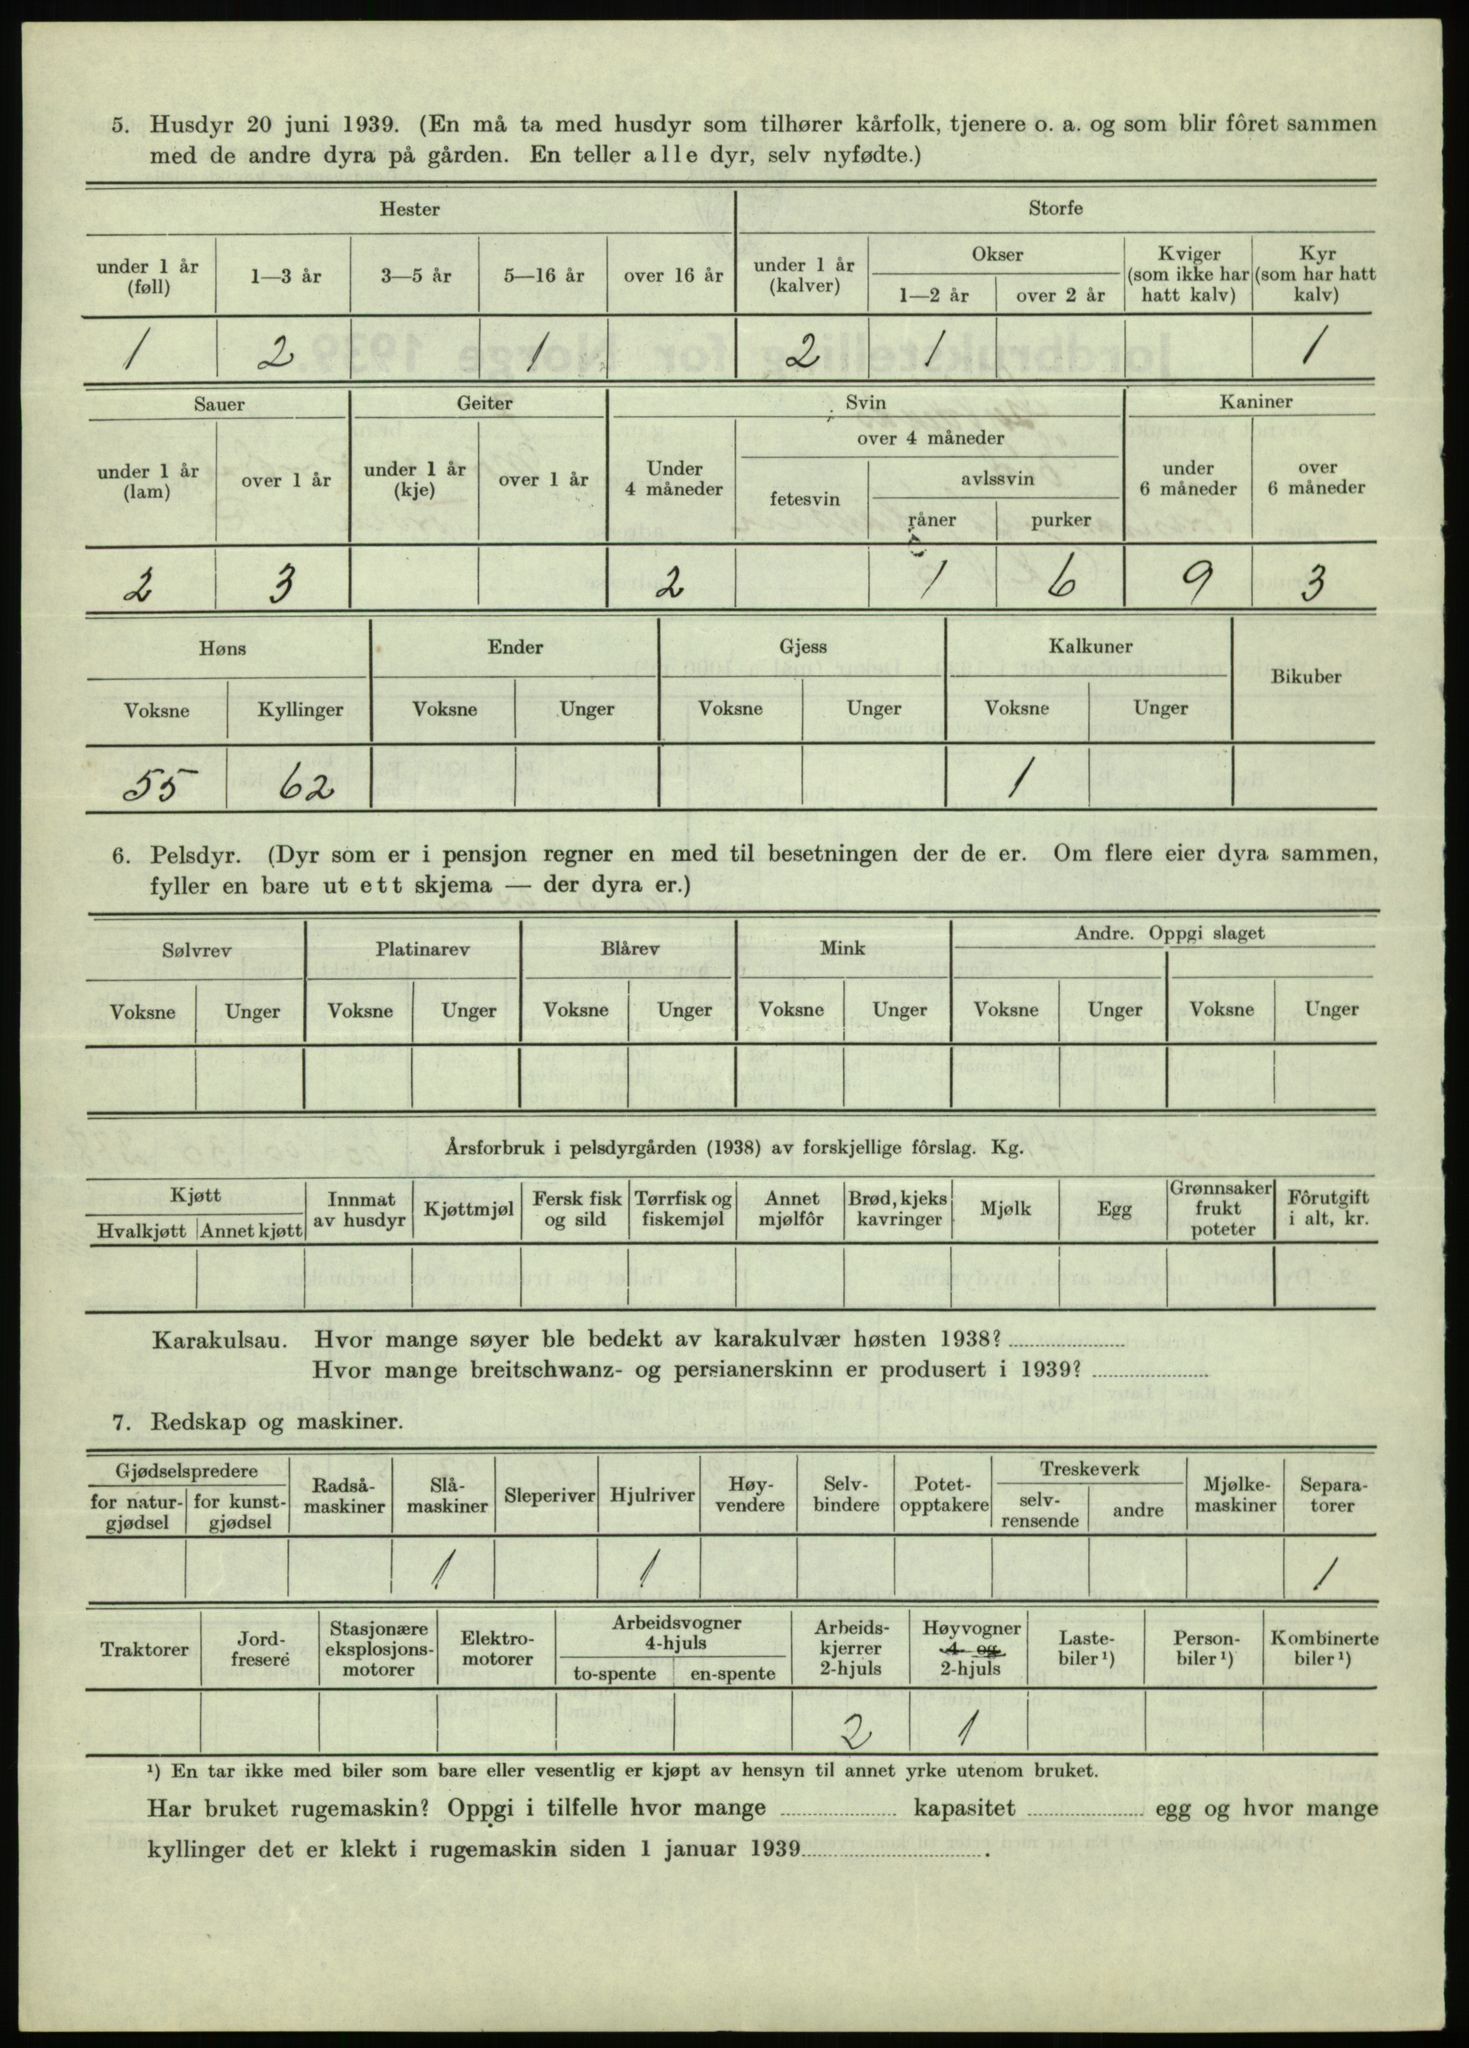 5. Husdyr 20 juni 1939. (En må ta med husdyr som tilhører kårfolk, tjenere o. a. og som blir fôret sammen
med de andre dyra på gården. En teller alle dyr, selv nyfødte.)
Hester Storfe
under 1 år (føll) 1—3 år 3—5 år 5—16 år over 16 år under 1 år (kalver) Okser 1—2 år over 2 år Kviger (som ikke har hatt kalv) Kyr (som har hatt kalv)
1 2 1 2 1 1
Sauer Geiter Svin Kaniner
under 1 år (lam) over 1 år under 1 år (kje) over 1 år Under 4 måneder over 4 måneder fetesvin avlssvin råner purker under 6 måneder over 6 måneder
2 3 2 1 6 9 3
Høns Ender Gjess Kalkuner Bikuber
Voksne Kyllinger Voksne Unger Voksne Unger Voksne Unger
55 62 1
6. Pelsdyr. (Dyr som er i pensjon regner en med til besetningen der de er. Om flere eier dyra sammen,
fyller en bare ut ett skjema — der dyra er.)
Sølvrev Platinarev Blårev Mink Andre. Oppgi slaget
Voksne Unger Voksne Unger Voksne Unger Voksne Unger Voksne Unger Voksne Unger
Årsforbruk i pelsdyrgården (1938) av forskjellige fôrslag. Kg.
Kjøtt Hvalkjøtt Annet kjøtt Innmat av husdyr Kjøttmjøl Fersk fisk og sild Tørrfisk og fiskemjøl Annet mjølfôr Brød, kjeks kavringer Mjølk Egg Grønnsaker frukt poteter Fôrutgift i alt, kr.
Karakulsau. Hvor mange søyer ble bedekt av karakulvær høsten 1938?
Hvor mange breitschwanz- og persianerskinn er produsert i 1939?
7. Redskap og maskiner.
Gjødselspredere for natur-gjødsel for kunst-gjødsel Radså-maskiner Slå-maskiner Sleperiver Hjulriver Høy-vendere Selv-bindere Potet-opptakere Treskeverk selv-rensende andre Mjølke-maskiner Separa-torer
1 1 1
Traktorer Jord-fresere Stasjonære eksplosjons-motorer Elektro-motorer Arbeidsvogner 4-hjuls to-spente en-spente Arbeids-kjerrer 2-hjuls Høyvogner 4- og 2-hjuls Laste-biler¹) Person-biler¹) Kombinerte biler¹)
2 1
¹) En tar ikke med biler som bare eller vesentlig er kjøpt av hensyn til annet yrke utenom bruket.
Har bruket rugemaskin? Oppgi i tilfelle hvor mange kapasitet egg og hvor mange
kyllinger det er klekt i rugemaskin siden 1 januar 1939.